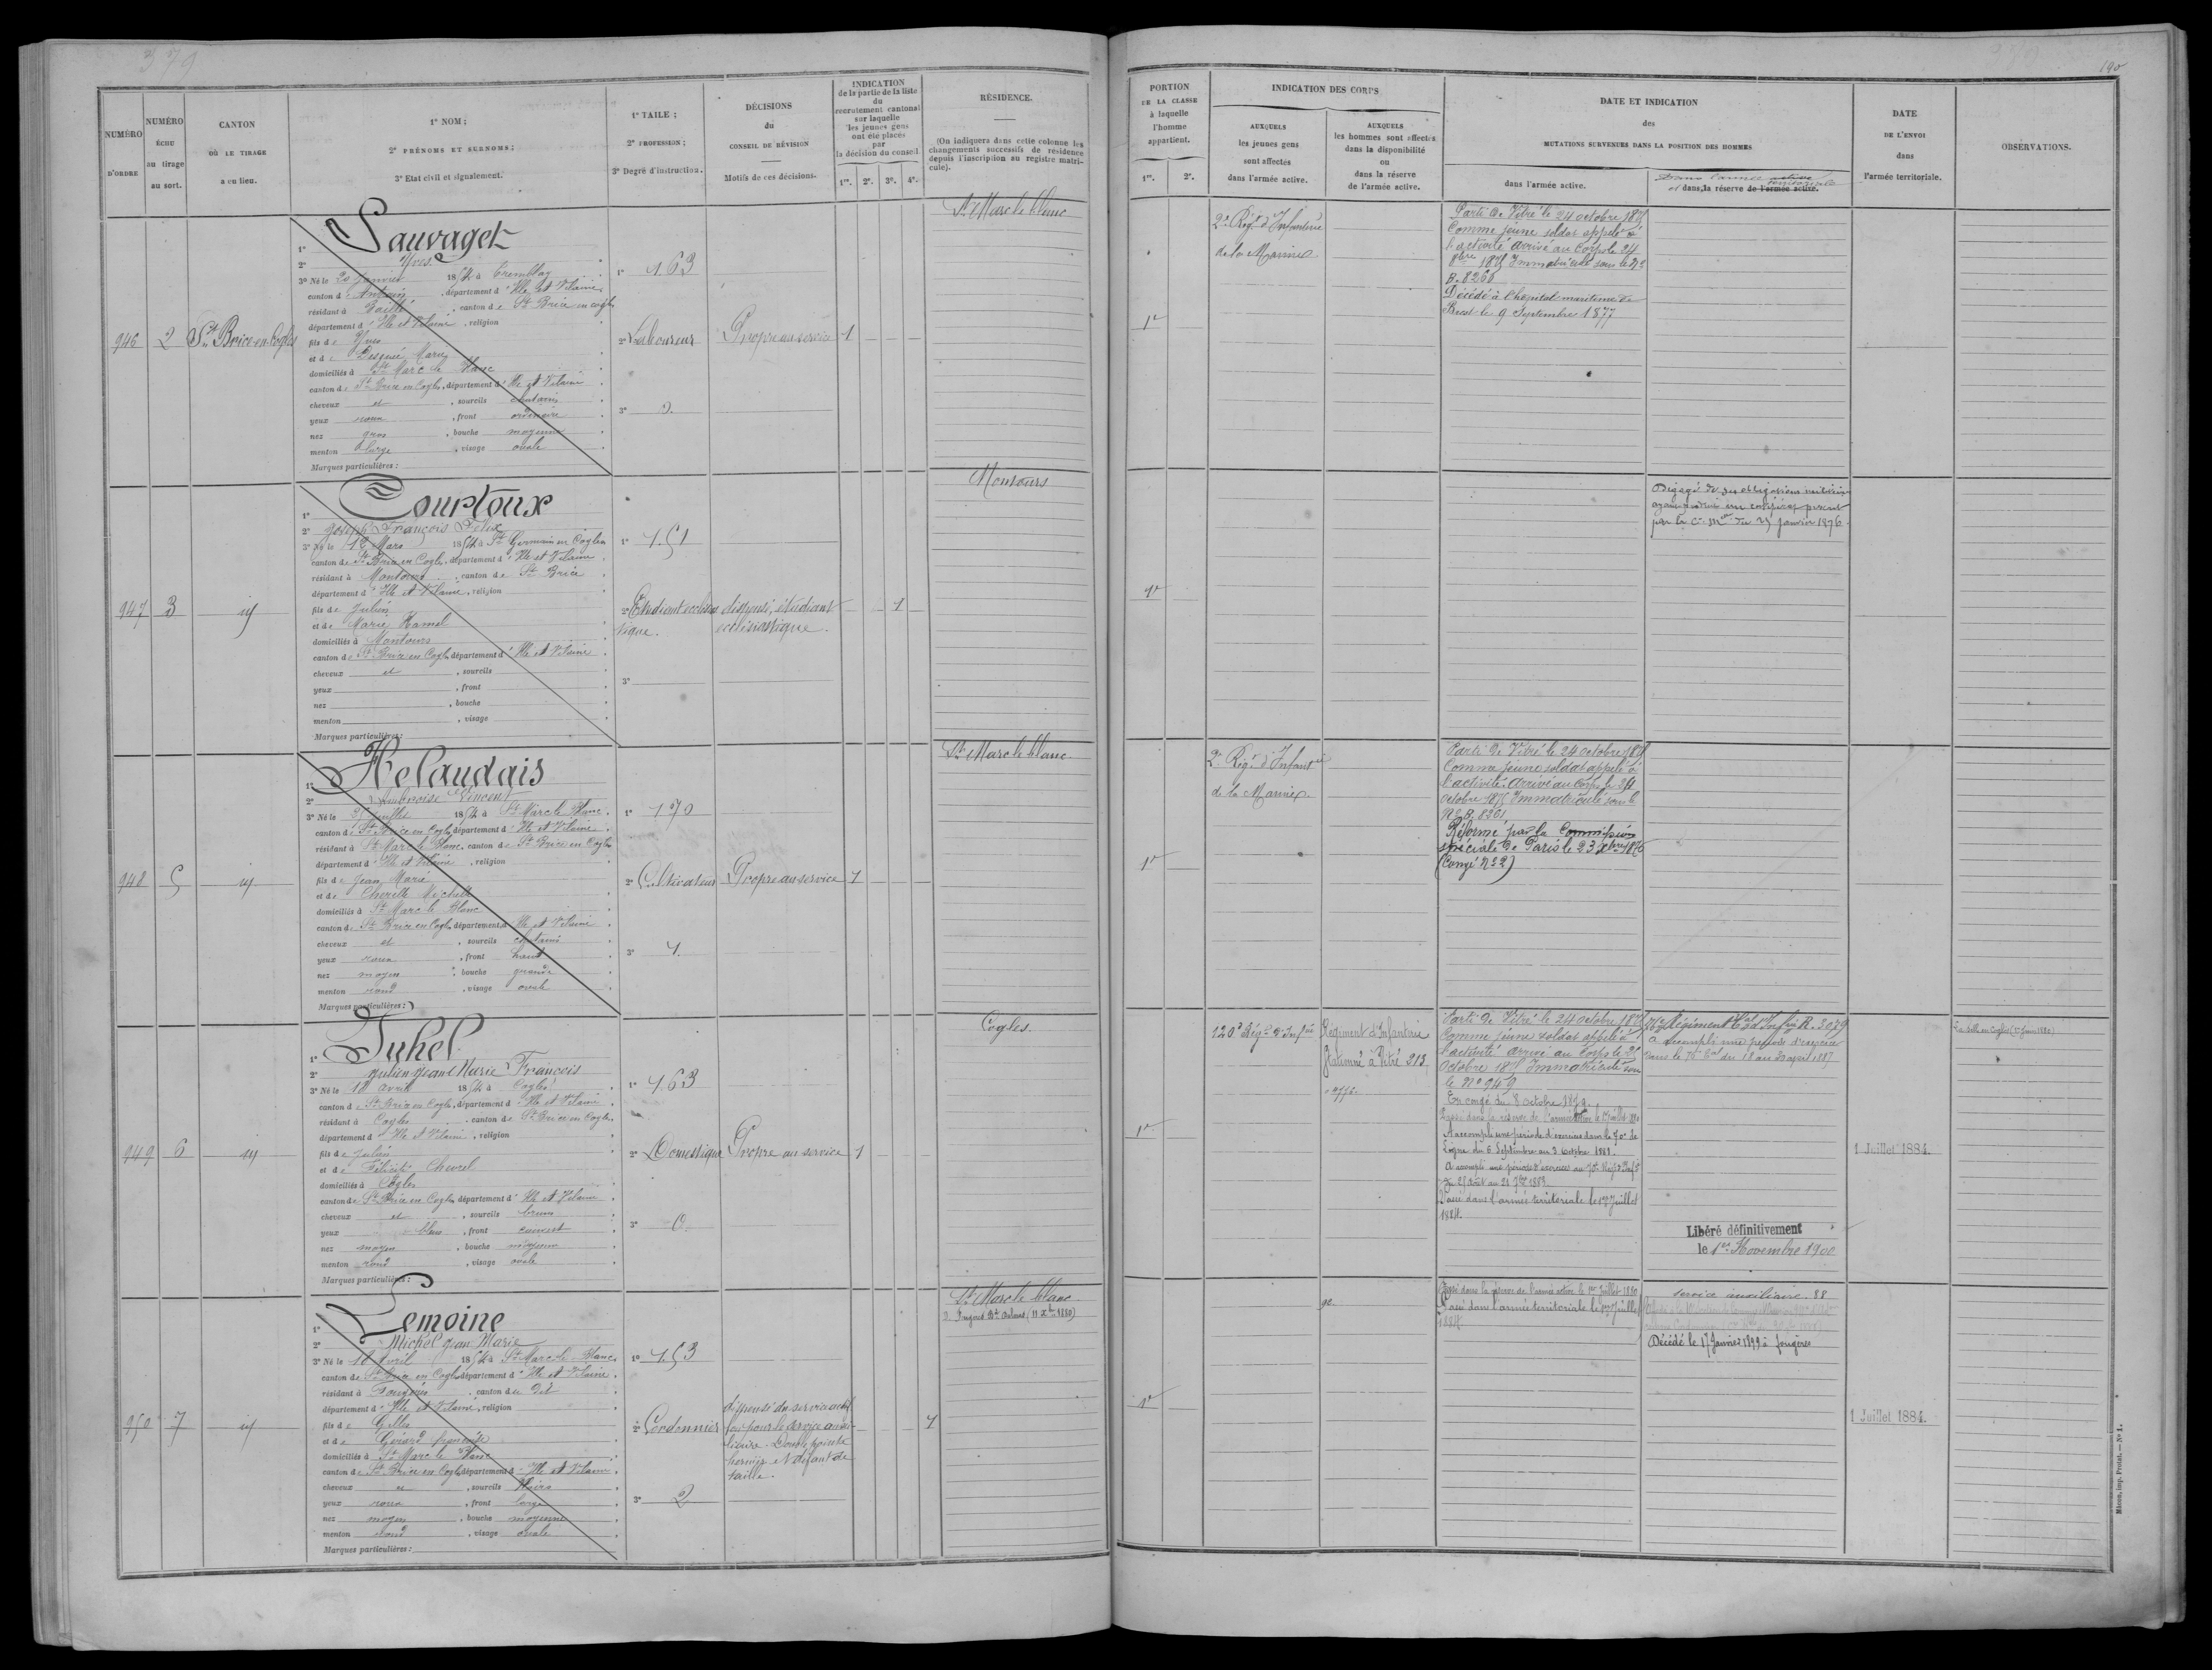 379
190
NUMÉRO D'ORDRE
NUMÉRO ÉCHU au tirage au sort.
CANTON OÙ LE TIRAGE a eu lieu.
1° NOM ;
2° PRÉNOMS ET SURNOMS ;
3° Etat civil et signalement.
1° TAILE ;
2° PROFESSION ;
3° Degré d'instruction.
DÉCISIONS
du
CONSEIL DE RÉVISION
Motifs de ces décisions.
INDICATION
de la partie de la liste
du
recrutement cantonal
sur laquelle
les jeunes gens
ont été placés
par
la décision du conseil
1re. 2e. 3e. 4e.
RÉSIDENCE.
(On indiquera dans cette colonne les
changements successifs de résidence
depuis l'inscription au registre matri-
cule).
PORTION
DE LA CLASSE
à laquelle
l'homme
appartient.
1re. 2e.
INDICATION DES CORPS
AUXQUELS
les jeunes gens
sont affectés
dans l'armée active.
AUXQUELS
les hommes sont affectés
dans la disponibilité
ou
dans la réserve
de l'armée active.
DATE ET INDICATION
des
MUTATIONS SURVENUES DANS LA POSITION DES HOMMES
dans l'armée active.
Dans l'armée active
et dans la réserve de l'armée active. territoriale
DATE
DE L'ENVOI
dans
l'armée territoriale.
OBSERVATIONS.
946
2
St Brice-en-Cogles
1° Sauvaget
2° Yves.
3° Né le 20 Janvier 1854 à Tremblay
canton d'Antrain, département d'Ille et Vilaine
résidant à Baillé, canton de St Brice en cogles
département d'Ille et Vilaine, religion
fils de Yves
et de Marie
domiciliés à St Marc le Blanc
canton de St Brice en Cogles, département d'Ille et Vilaine
cheveux et, sourcils chatains
yeux roux, front ordinaire
nez gros, bouche moyenne
menton large, visage ovale
Marques particulières :
1° 1.63
2° Laboureur
3° 0.
Propre au service
1
St Marc le blanc
1e
2e Régt d'Infanterie
de la Marine
Parti de Vitré le 24 octobre 1875
Comme jeune soldat appelé à
l'activité arrivé au Corps le 24
8bre 1875 Immatriculé sous le No
B. 8260
Décédé à l'hopital maritime de
Brest le 9 Septembre 1877
947
3
id
1° Courtoux
2° Joseph François Felix
3° Né le 12 Mars 1854 à St Germain en Cogles
canton de St Brice en Cogles, département d'Ille et Vilaine
résidant à Montours, canton de St Brice
département d'Ille et Vilaine, religion
fils de Julien
et de Marie Hamel
domiciliés à Montours
canton de St Brice en Cogles département d'Ille et Vilaine
cheveux et, sourcils
yeux, front
nez, bouche
menton, visage
Marques particulières :
1° 1.51
2° Etudiant ecclésias
tique.
3°
dispensé, étudiant
ecclésiastique.
1
Montours
1e
Dégagé de ses obligations militaires
par la Cre Mlle du 25 Janvier 1876.
948
5
id
1° Helaudais
2° Ambroise Vincent
3° Né le 25 Juillet 1854 à St Marc le Blanc
canton de St Brice en Cogles département d'Ille et Vilaine
résidant à St Marc le Blanc, canton de St Brice en Cogles
département d'Ille et Vilaine, religion
fils de Jean Marie
et de Michelle
domiciliés à St Marc le Blanc
canton de St Brice en Cogles, département d'Ille et Vilaine
cheveux et, sourcils chatains
yeux roux, front haut
nez moyen, bouche grande
menton rond, visage ovale
Marques particulières :
1° 1.70
2° Cultivateur
3° 1.
Propre au service
1
St Marc le blanc.
1e
2e Régt d'Infantrie
de la Marine.
Parti de Vitré le 24 octobre 1875
Comme jeune soldat appelé à
l'activité. arrivé au Corps le 24
octobre 1875 Immatriculé sous le
No B. 8261
Réformé par la Commission
spéciale de Paris le 23 Xbre 1876
(Congé No 2)
949
6
id
1° Juhel
2° Julien Jean Marie François
3° Né le 10 avril 1854 à Cogles
canton de St Brice en Cogles, département d'Ille et Vilaine
résidant à Cogles, canton de St Brice en Cogles
département d'Ille et Vilaine, religion
fils de Julien
et de Félicité Chevrel
domiciliés à Cogles
canton de St Brice en Cogles département d'Ille et Vilaine
cheveux et, sourcils bruns
yeux bleus, front couvert
nez moyen, bouche moyenne
menton rond, visage ovale
Marques particulières :
1° 1.63
2° Domestique
3° 0.
Propre au service
1
Cogles.
1e
120e Régt d'Infie
Régiment d'Infanterie
stationné à Vitré 213
Parti de Vitré le 24 octobre 1875
Comme jeune soldat appelé à
l'activité arrivé au Corps le 25
octobre 1875 Immatriculé sous
le No 949
En congé du 8 octobre 1879.
Passé dans la réserve de l'armée active le 1er Juillet 1880
A accompli une période d'exercices dans le 70e de
Ligne du 6 Septembre au 3 octobre 1881.
A accompli une période d'exercices au 70e Régt d'Inft
du 25 Août au 21 7bre 1883
Passé dans l'armée territoriale le 1er Juillet
1884.
76e Régiment Tal d'Infie R. 3079
A accompli une période d'exercices
dans le 76e Tal du 18 au 30 avril 1887
Libéré définitivement
le 1er Novembre 1900
1 Juillet 1884.
950
7
id
1° Lemoine
2° Michel Jean Marie
3° Né le 10 avril 1854 à St Marc le Blanc
canton de St Brice en Cogles département d'Ille et Vilaine
résidant à Fougères, canton du dit
département d'Ille et Vilaine, religion
fils de Gilles
et de Guiard françoise
domiciliés à St Marc le Blanc
canton de St Brice en Cogles département d'Ille et Vilaine
cheveux et, sourcils Noirs
yeux roux, front large
nez moyen, bouche moyenne
menton rond, visage ovale
Marques particulières :
1° 1.53
2° Cordonnier
3° 2
dispensé du service actif
bon pour le service auxi-
liaire. Double pointe
hernie et défaut de
taille.
1
St Marc le blanc
1e
Passé dans la réserve de l'armée active le 1er Juillet 1880
Passé dans l'armée territoriale le 1er Juillet
1884
service auxiliaire. 88
Décédé le 17 Janvier 1899 à fougères
1 Juillet 1884.